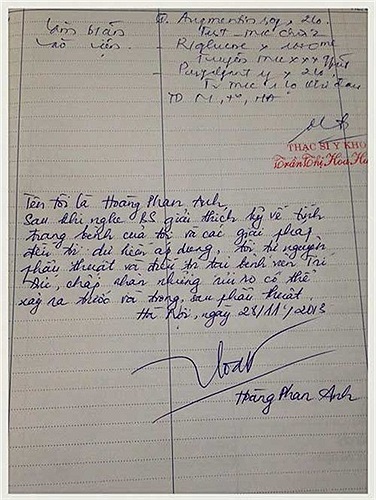 Làm bilan
vào viện
Augmentin 1,2g x 2 lọ
Test - TMC chia 2
- Rglucose x 1000ml
Truyền TMC XXX g/phút
- Perfalgan 1g x 2 lọ
TD M, t°, HA
THẠC SĨ Y KHOA
Trần Thị Hoa
Tên tôi là Hoàng Phan Anh
Sau khi nghe BS giải thích kỹ về tình
trạng bệnh của tôi và các giải pháp
điều trị dự kiến áp dụng, tôi tự nguyện
phẫu thuật và điều trị tại bệnh viện Trí
Đức, chấp nhận những rủi ro có thể
xảy ra trước và trong, sau phẫu thuật.
Hà Nội, ngày 28/11/2013
Hoàng Phan Anh